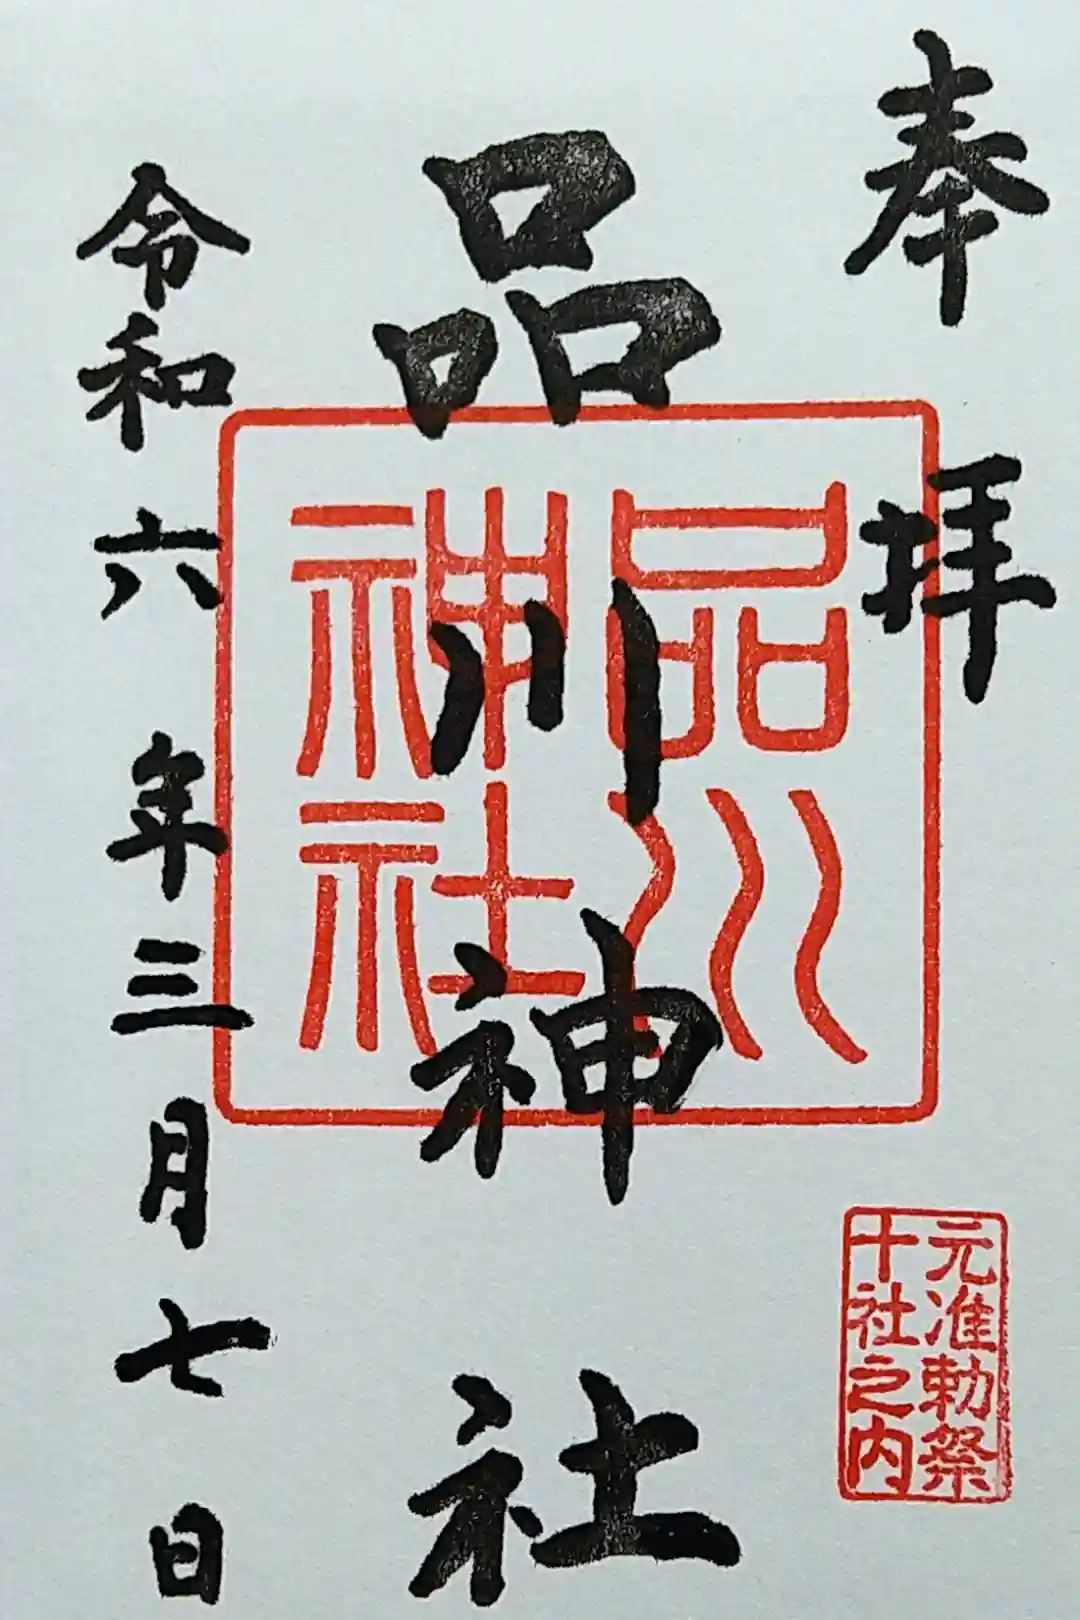 奉拝
元准勅祭
十社之内
品川神社
品川
神社
令和六年三月七日